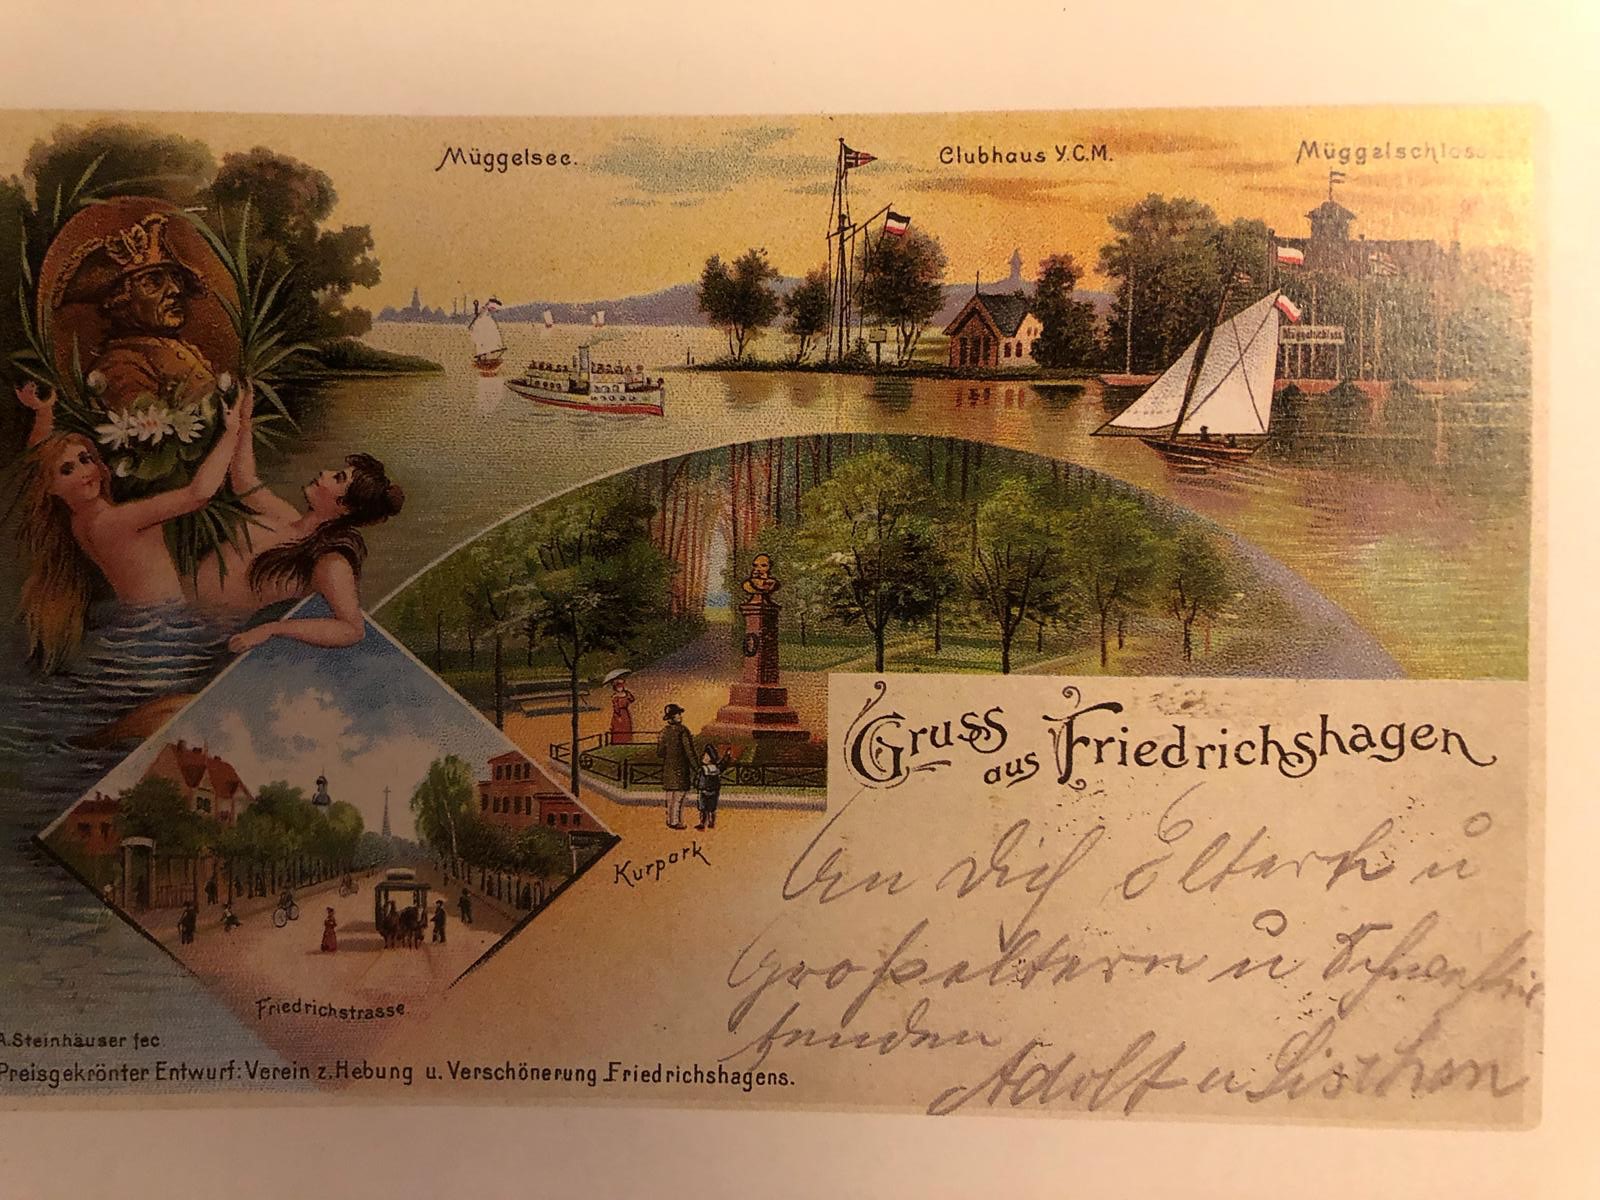 Müggelsee.
Clubhaus Y.C.M.
Müggelschloss
Müggelschloss
Gruss
aus Friedrichshagen
Kurpark
Eltern u
Großeltern u
senden
Adolf u Lischen
Friedrichstrasse.
A. Steinhäuser fec.
Preisgekrönter Entwurf: Verein z. Hebung u. Verschönerung Friedrichshagens.